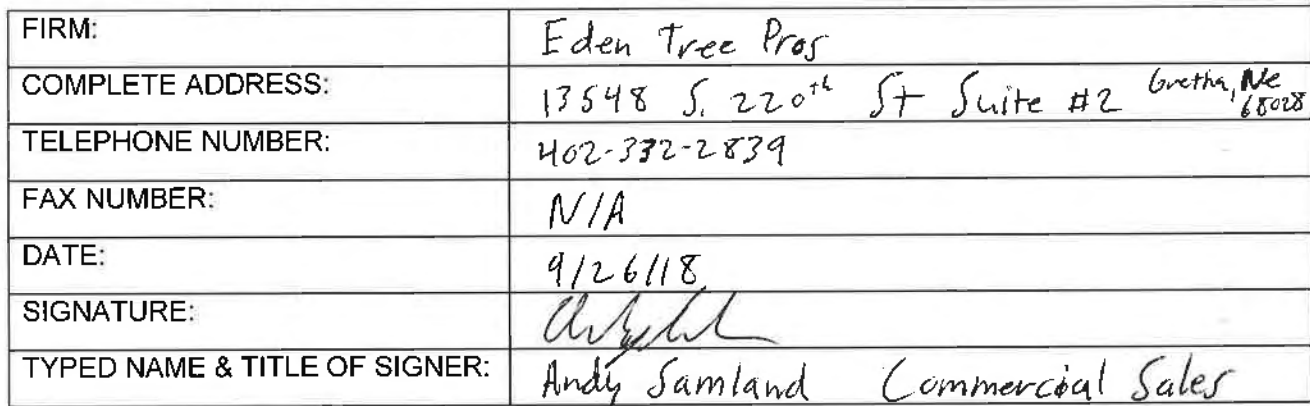 FIRM: Eden Tree Pros
COMPLETE ADDRESS: 13548 S. 220th St Suite #2 Gretna, Ne 68028
TELEPHONE NUMBER: 402-332-2839
FAX NUMBER: N/A
DATE: 9/26/18
SIGNATURE:
TYPED NAME & TITLE OF SIGNER: Andy Samland Commercial Sales